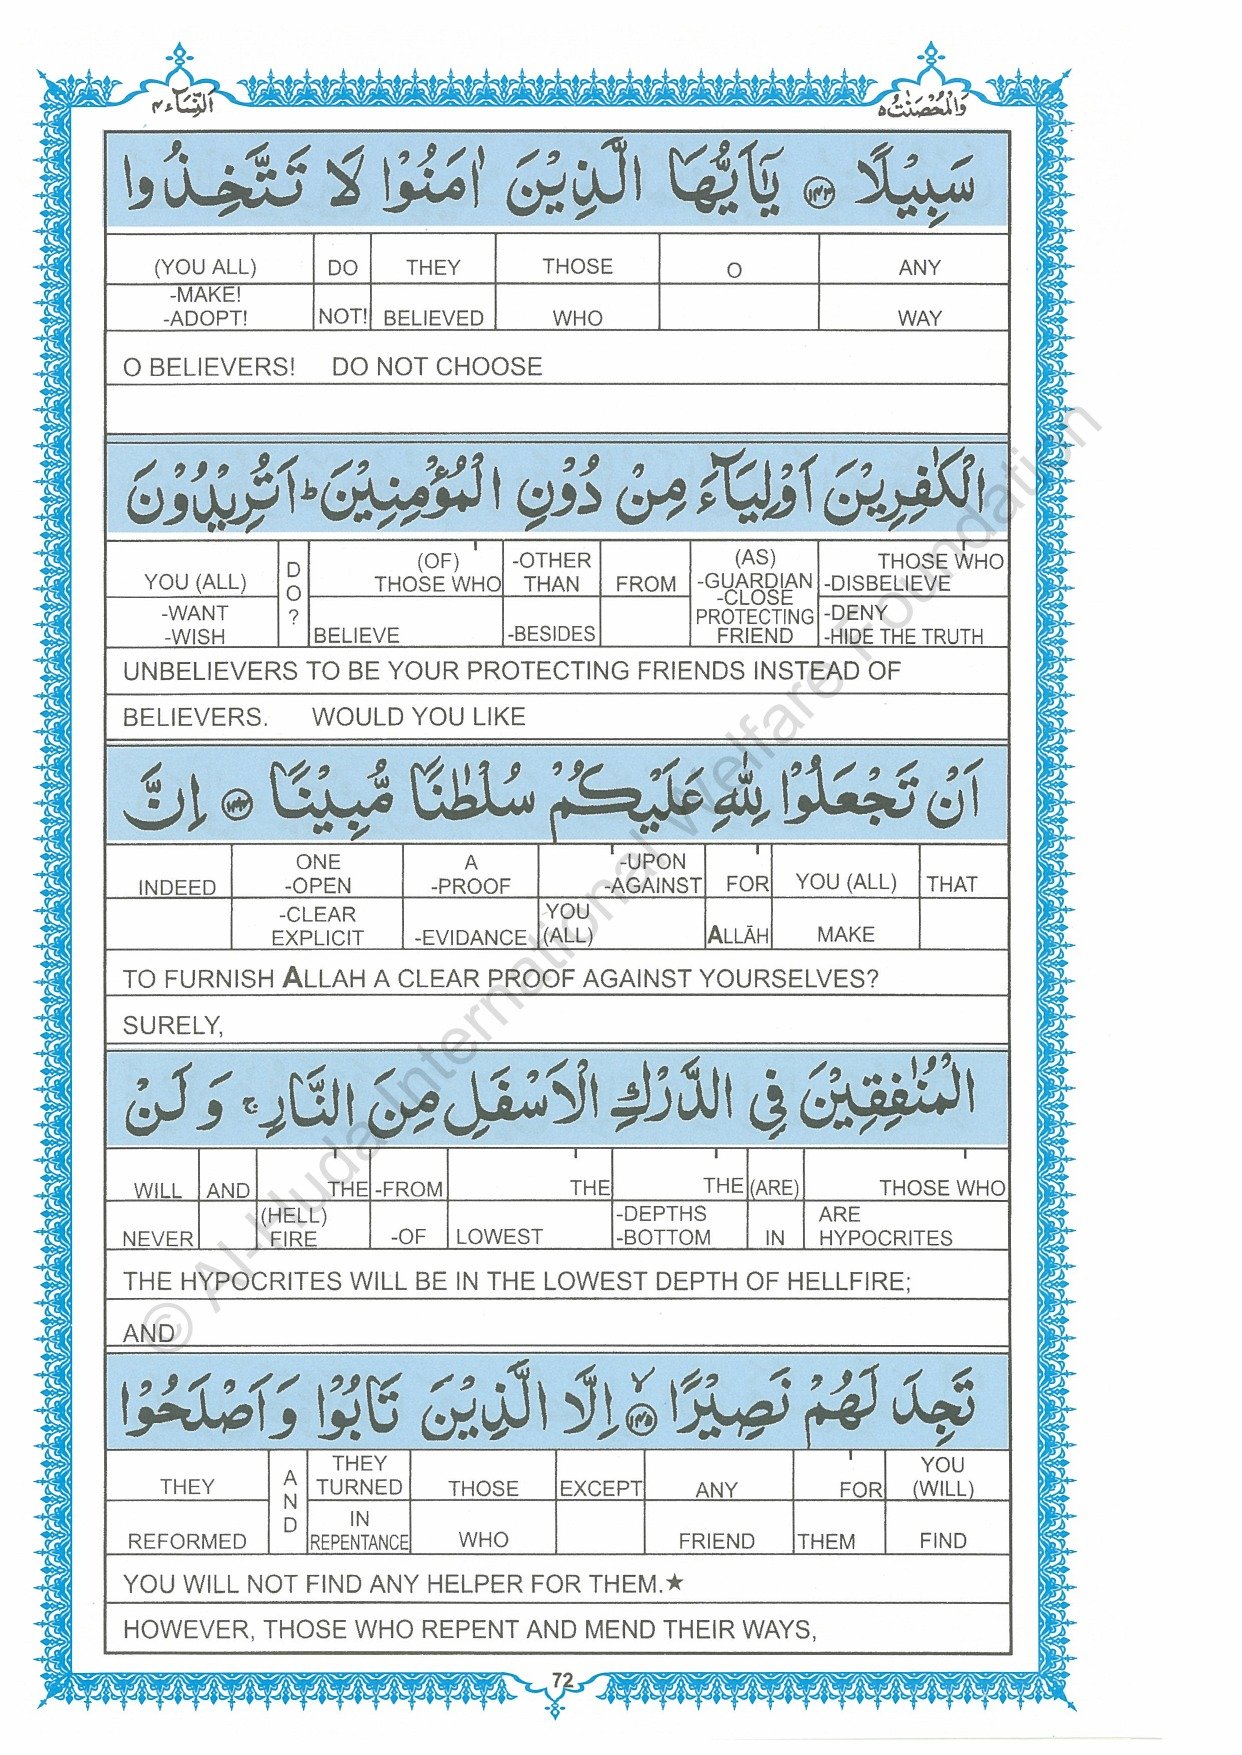 النِّسَآء ٤
وَالْمُحْصَنٰتُ ٥
سَبِيْلًا ﴿١٤٣﴾ يٰۤاَيُّهَا الَّذِيْنَ اٰمَنُوْا لَا تَتَّخِذُوا
(YOU ALL) DO THEY THOSE O ANY
-MAKE!
-ADOPT! NOT! BELIEVED WHO WAY
O BELIEVERS! DO NOT CHOOSE
الْكٰفِرِيْنَ اَوْلِيَآءَ مِنْ دُوْنِ الْمُؤْمِنِيْنَ ؕ اَتُرِيْدُوْنَ
YOU (ALL) DO? (OF) THOSE WHO -OTHER THAN FROM (AS) -GUARDIAN THOSE WHO -DISBELIEVE
-WANT -WISH BELIEVE -BESIDES -CLOSE PROTECTING FRIEND -DENY -HIDE THE TRUTH
UNBELIEVERS TO BE YOUR PROTECTING FRIENDS INSTEAD OF
BELIEVERS. WOULD YOU LIKE
اَنْ تَجْعَلُوْا لِلّٰهِ عَلَيْكُمْ سُلْطٰنًا مُّبِيْنًا ﴿١٤٤﴾ اِنَّ
INDEED ONE -OPEN A -PROOF -UPON -AGAINST FOR YOU (ALL) THAT
-CLEAR EXPLICIT -EVIDANCE YOU (ALL) ALLĀH MAKE
TO FURNISH ALLAH A CLEAR PROOF AGAINST YOURSELVES?
SURELY,
الْمُنٰفِقِيْنَ فِي الدَّرْكِ الْاَسْفَلِ مِنَ النَّارِ ۚ وَلَنْ
WILL AND THE -FROM THE THE (ARE) THOSE WHO
NEVER (HELL) FIRE -OF LOWEST -DEPTHS -BOTTOM IN ARE HYPOCRITES
THE HYPOCRITES WILL BE IN THE LOWEST DEPTH OF HELLFIRE;
AND
تَجِدَ لَهُمْ نَصِيْرًا ﴿١٤٥﴾ اِلَّا الَّذِيْنَ تَابُوْا وَاَصْلَحُوْا
THEY AND THEY TURNED THOSE EXCEPT ANY FOR YOU (WILL)
REFORMED IN REPENTANCE WHO FRIEND THEM FIND
YOU WILL NOT FIND ANY HELPER FOR THEM.★
HOWEVER, THOSE WHO REPENT AND MEND THEIR WAYS,
72
© Al-Huda International Welfare Foundation